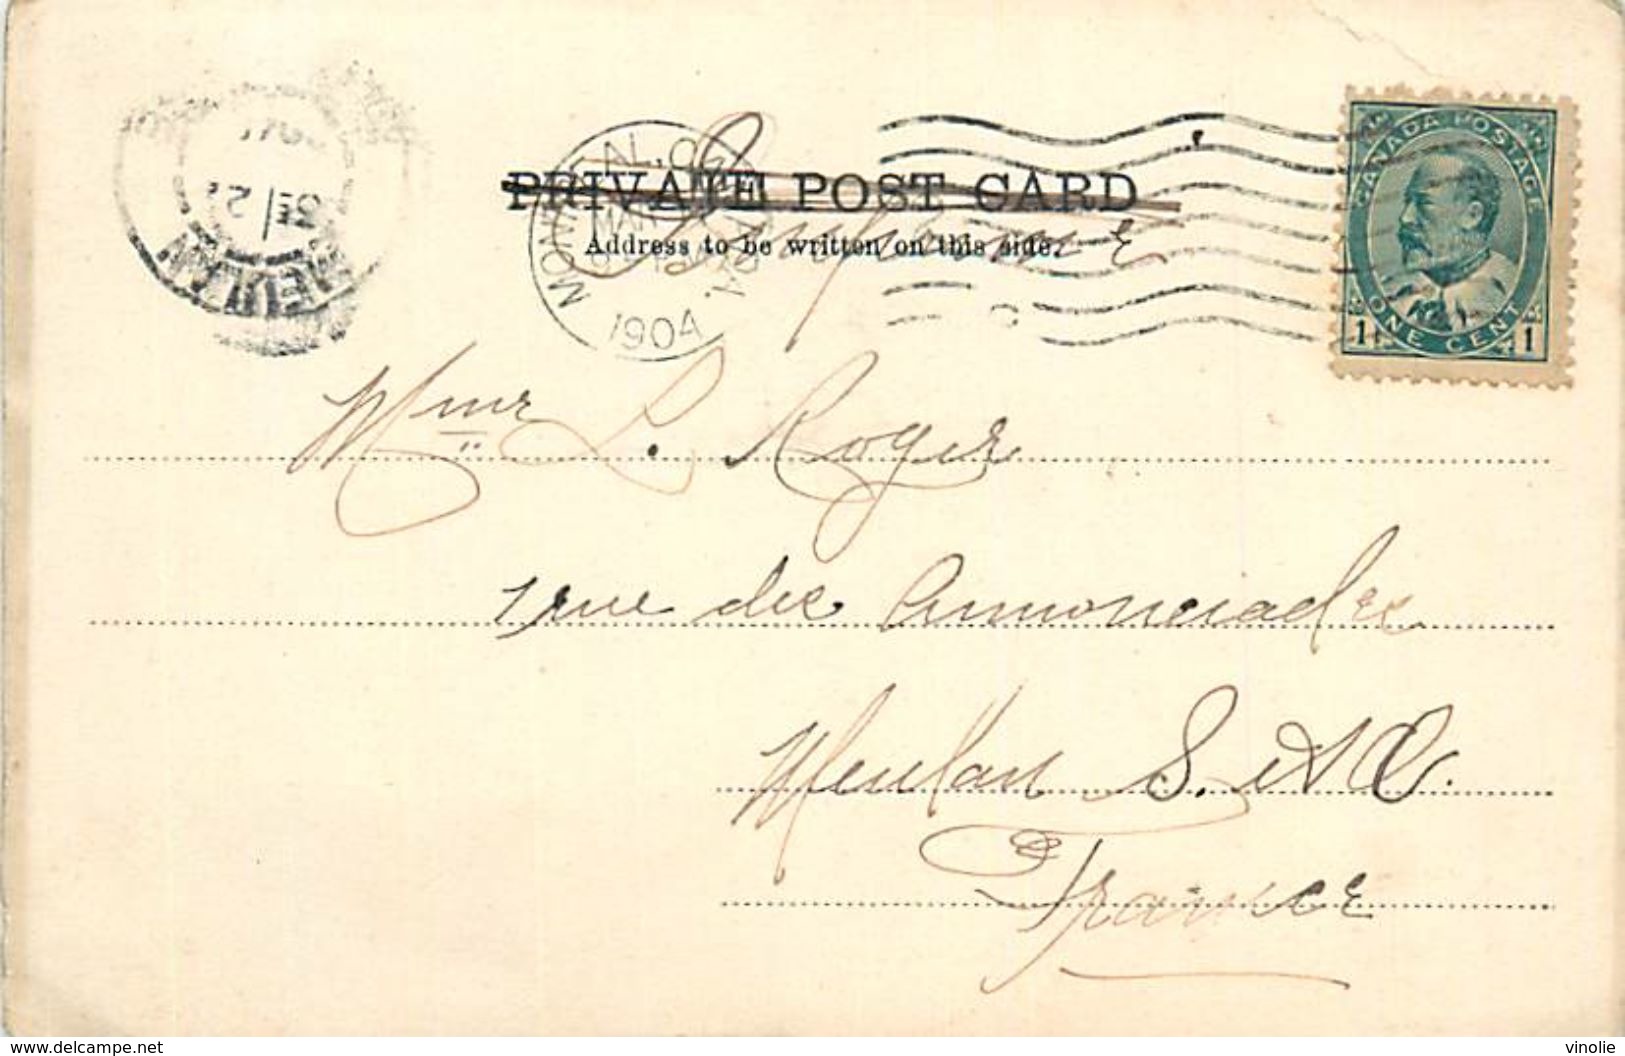 PRIVATE POST CARD
Address to be written on this side.
Imprimé
MONTREAL, CANADA.
MAR
1904
MEULAN
CANADA POSTAGE
1 ONE CENT 1
Mme L. Roger
rue des Annonciades
Meulan S. et O.
France
www.delcampe.net
vinolie